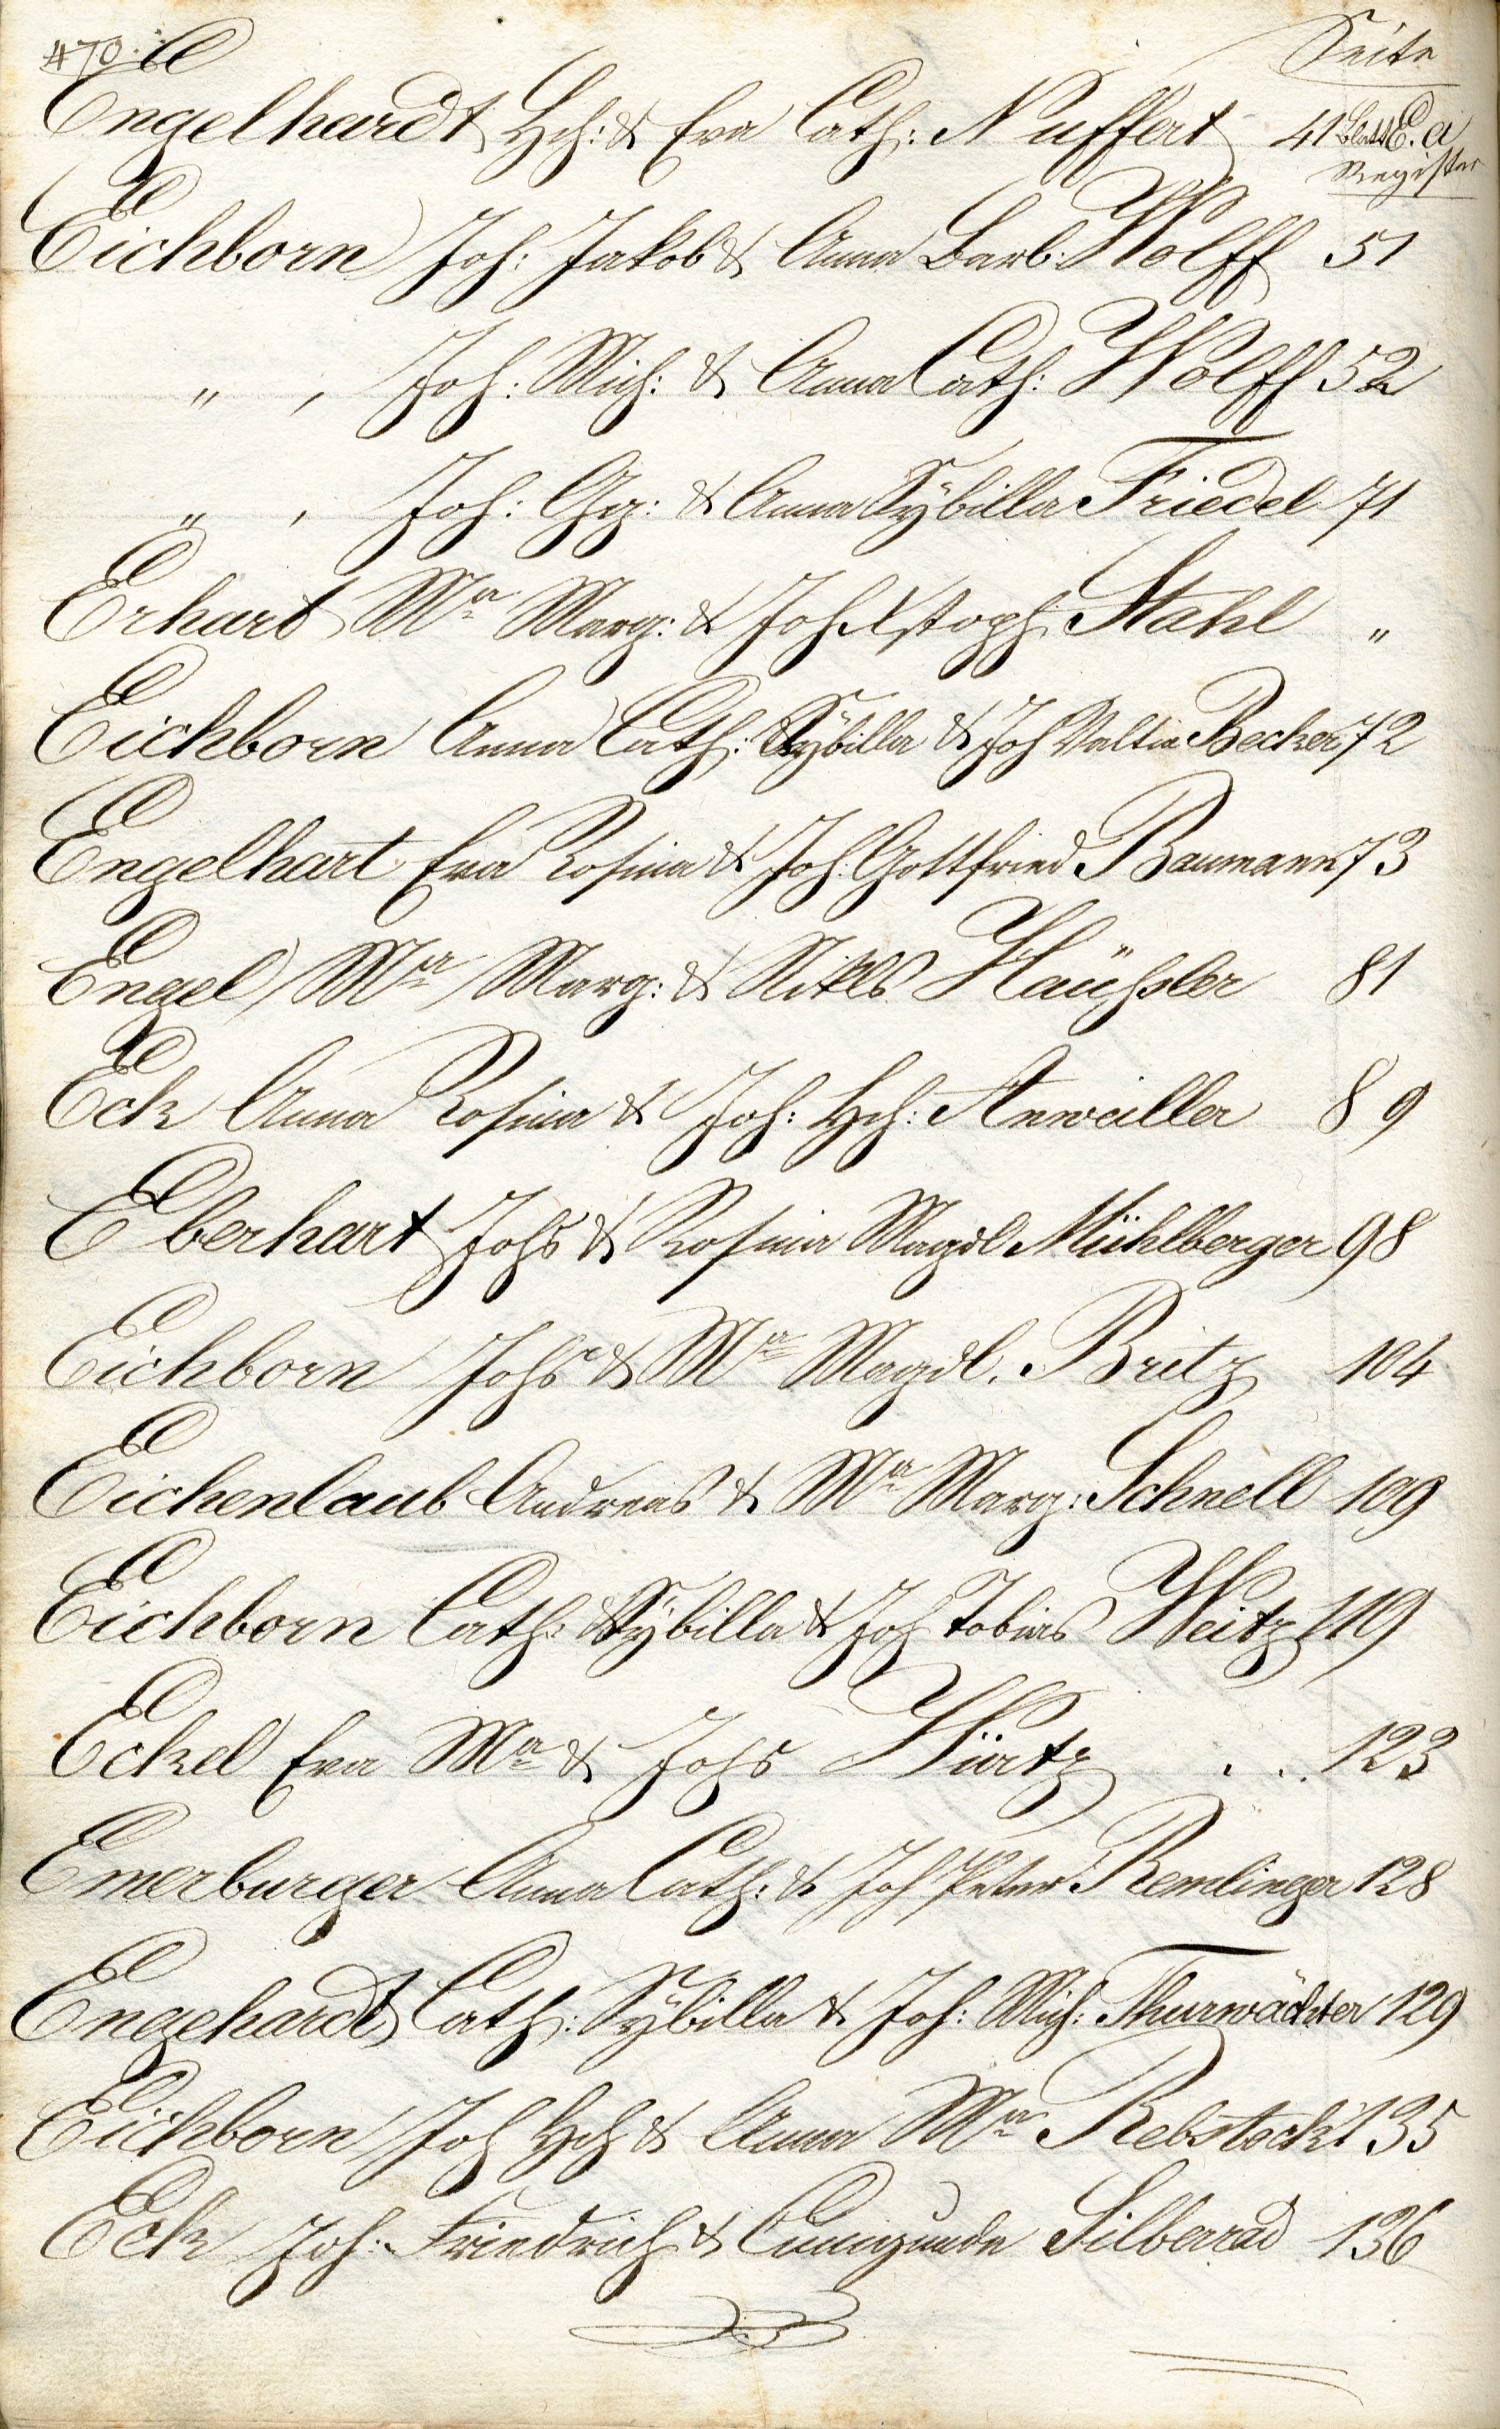 470.
Seite
Engelhardt Hch: & Eva Cath: Nuffert 41 E. a
Register
Eichborn Joh: Jakob & Anna Barb: Wolff 51
" , Joh: Mich: & Anna Cath: Wolff 52
" , Joh: Gg: & Anna Sÿbilla Friedel 71
Erhart Ma Marg: & Joh Xstoph Stahl "
Eichborn Anna Cath: Sÿbilla & Joh Valtin Becker 72
Engelhart Eva Rosina & Joh: Gottfried Baumann 73
Engel Ma Marg: & Nikls Häußler 81
Eck Anna Rosina & Joh: Hch: Anweiller 89
Eberhart Johs & Rosina Magdl Mühlberger 98
Eichborn Johs & Ma Magdl. Britz 104
Eichenlaub Andreas & Ma Marg: Schnell 109
Eichborn Cath: Sÿbilla & Joh Tobias Weitz 119
Eckel Eva Ma & Johs Würtz . . . 123
Emerburger Anna Cath: & Joh Peter Remlinger 128
Engehardt Cath: Sÿbilla & Joh: Mich: Thurwächter 129
Eichborn Joh Hch & Anna Ma Rebstock 135
Eck Joh: Friedrich & Cunigunde Silberrad 136